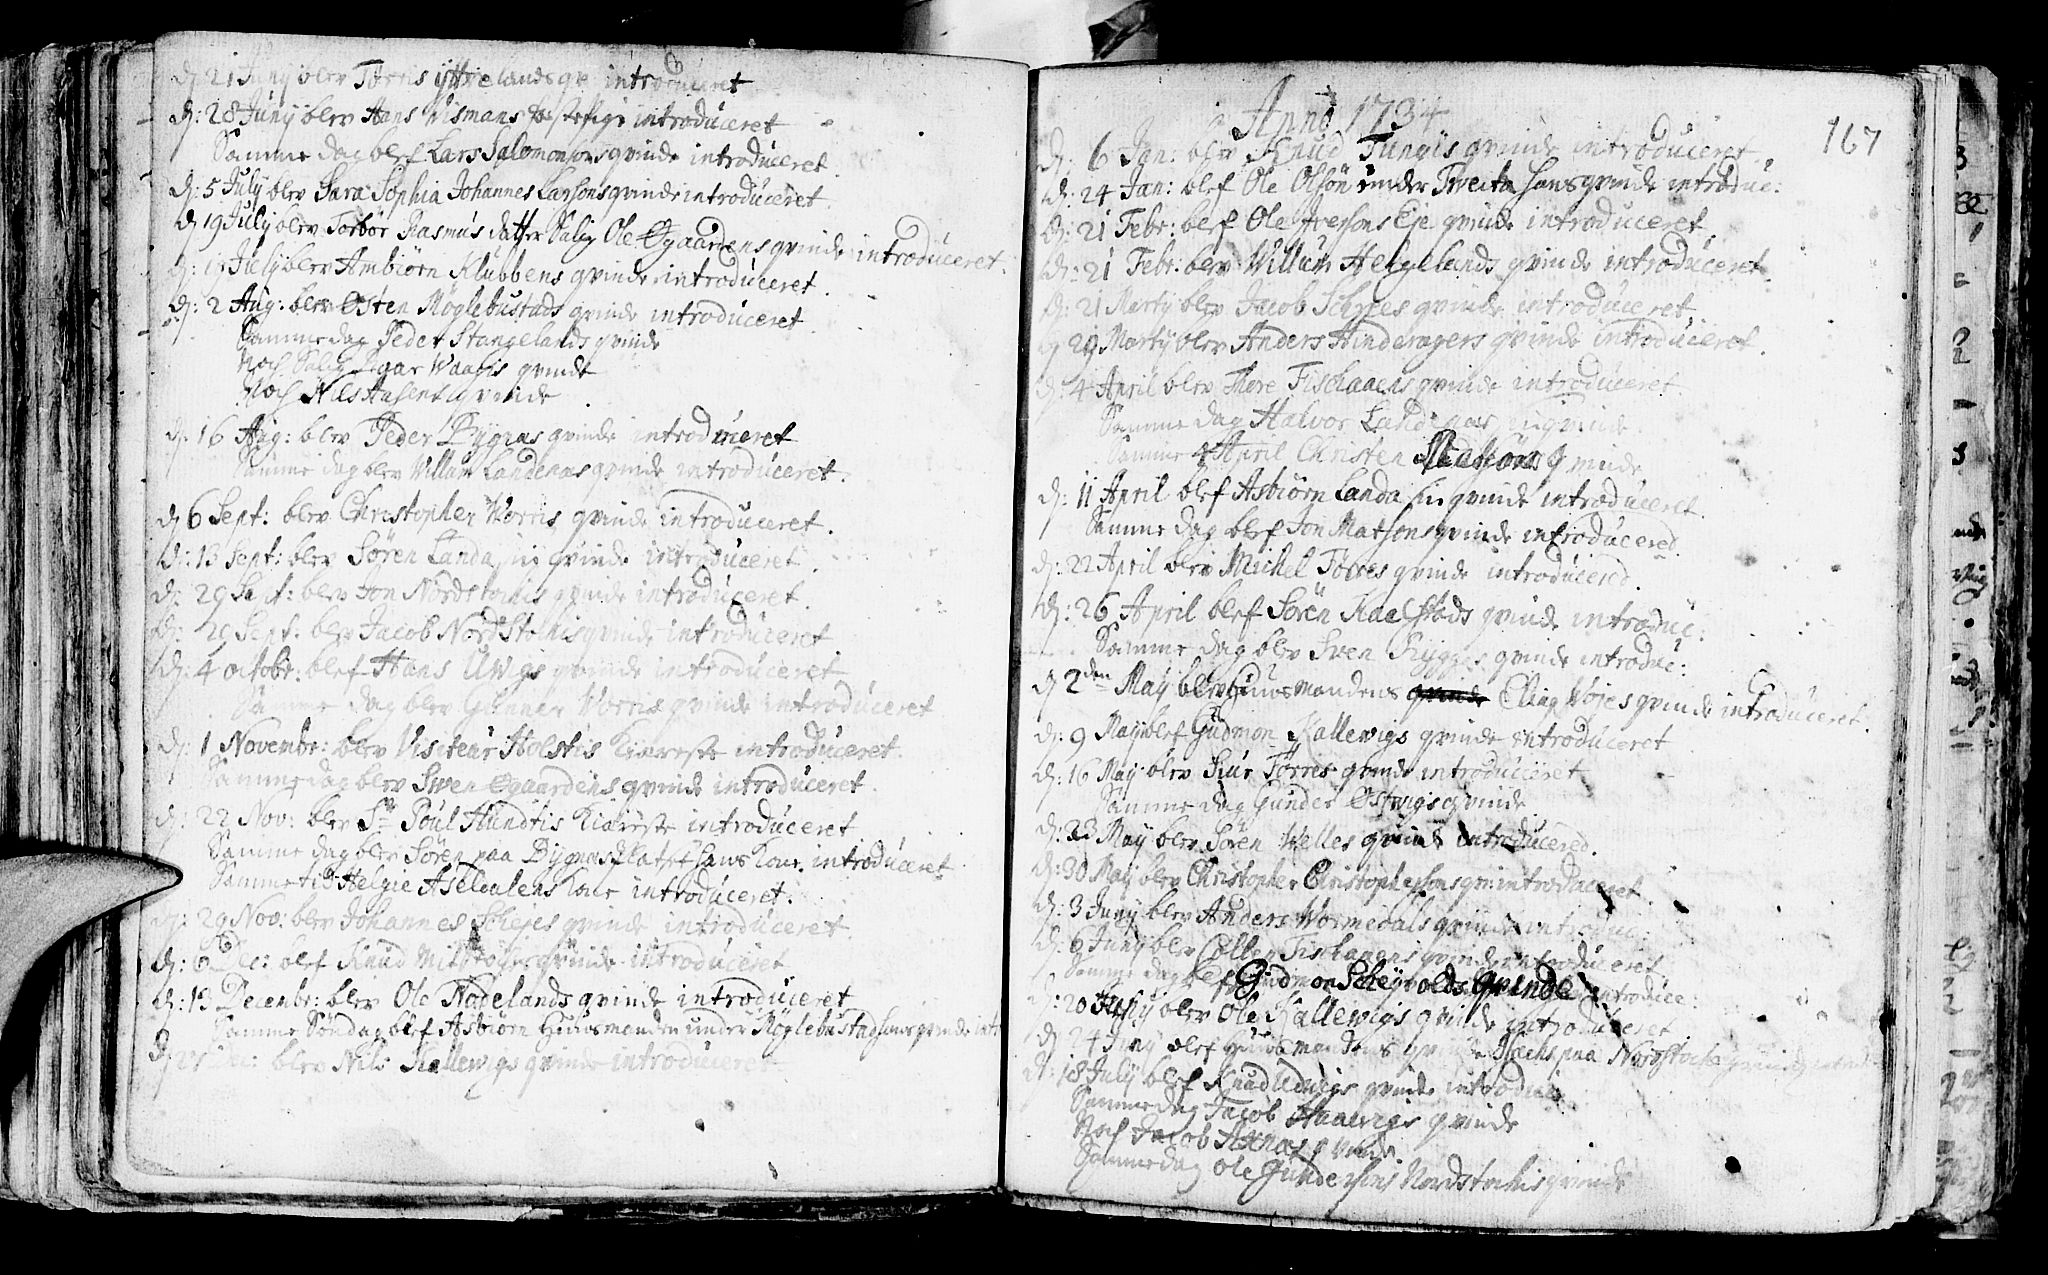 d: 21 Junÿ blev Tørris ÿttrelands qv: introduceret
d: 28 Junÿ blev Hans Wismans introduceret
Samme dag blef Lars Salomonsøns qvinde introduceret.
d: 5 July blev Sara Sophia Johannes Larsøns qvinde introduceret.
d 19 July blev Torbør Rasmus datter Salig Ole Øgaardens qvinde introduceret.
d: 19 July blev Ambiørn Klubbens qvinde introduceret.
d: 2 Aug: blev Østen Møglebustads qvinde introduceret
Samme dag Peder Stangelands qvinde
Noch Salig Waages qvinde
Noch Nils qvinde
d: 16 Aug: blev Peder Bygnas qvinde introduceret
Samme dag blev Villum Landenas qvinde introduceret.
d 6 Sept: blev Christopher Vorris qvinde introduceret.
d: 13 Sept: blev Søren Landa qvinde introduceret.
d: 29 Sept: blev Jon Nordstockis qvinde introduceret.
d: 29 Sept: blev Jacob Nordstockis qvinde introduceret
d: 4 octobr: blef Hans qvinde introduceret
Samme dag blev Gunner Vorris qvinde introduceret
d: 1 Novembr: blev Visiteur Holstis Kiæreste introduceret.
Samme dag blev Swen Øgaardens qvinde introduceret.
d: 22 Nov: blev Sr Poul Hundtis Kiæreste introduceret
Samme dag blev Søren paa Bygnas platz hans Kone introduceret
Samme tid Helgie Kone introduceret.
d: 29 Nov: blev Johannes Scheies qvinde introduceret.
d: 6 Dec: blef Knud qvinde introduceret
d: 13 Decembr: blev Ole Nadelands qvinde introduceret
Samme Søndag blef Asbiørn Huusmanden under Møglebustad hans qvinde intr
d 27 Dec: blev Nils Kallewigs qvinde introduceret
167
Anno 1734
d: 6 Jan: blev Knud qvinde introduceret.
d: 24 Jan: blef Ole Olsøn under Tweita hans qvinde introduc:
d: 21 Febr: blef Ole Iversøns Eje qvinde introduceret.
d: 21 Febr: blev Willum Helgelands qvinde introduceret.
d: 21 Martÿ blev Jacob Scheies qvinde introduceret
d 29 Martÿ blev Anders Hinderagers qvinde introduceret.
d: 4 April blev Thore Fischaaens qvinde introduceret
Samme dag Halvor Landenas qvinde.
Samme 4 April Christen qvinde
d: 11 April blef Asbiørn Landa qvinde introduceret.
Samme dag blef Jon Matsøns qvinde introducered
d: 22 April blev Michel Tørres qvinde introducered.
d: 26 April blef Søren Kaalstads qvinde introduc:
Samme dag blev Sven Rygges qvinde introduc:
d 2den May blev Huusmandens Elling Vojes qvinde introduceret.
d: 9 May blef Gudmon Kallewigs qvinde introduceret
d: 16 May blev Siur Tørres qvinde introduceret
Samme dag Gunder Østwigs qvinde
d: 23 May blev Søren Welles qvinde introducered.
d: 30 May blev Christopher Christophersøns qv: introduceret.
d: 3 Junÿ blev Anders Wormedals qvinde introduc:
d: 6 Junÿ blev Fischaaens qvinde introduceret.
Samme dag blef Gudmon Scheyvolds qvinde introduce:
d: 20 Junÿ blev Ole Kallewigs qvinde introduceret
d 24 Juny blef Huusmandens qvinde paa Nordstocke
d: 18 July blef Knud qvinde introduc:
Samme dag Jacob Haaewigs qvinde
Noch Jacob qvinde.
Samme dag Ole Gundersøns Nordstockis qvinde